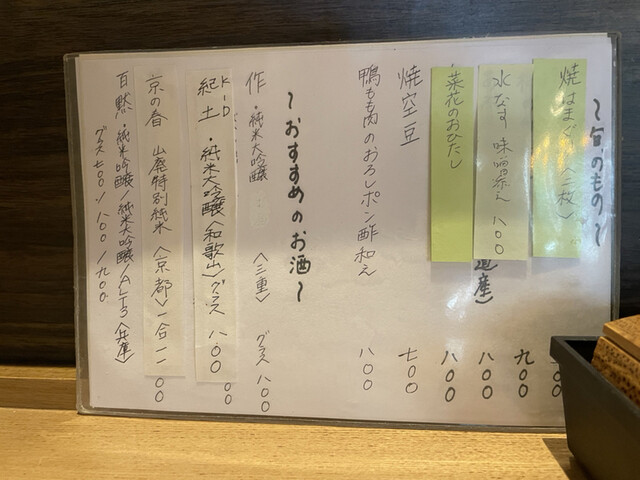 ～旬のもの～
焼はまぐり（二枚）
九〇〇
水なす 味噌添え 八〇〇
道産）
八〇〇
菜花のおひたし
八〇〇
焼空豆
七〇〇
鴨もも肉のおろしポン酢和え
八〇〇
～おすすめのお酒～
作・純米大吟醸 〈三重〉 グラス 八〇〇
KID
紀土・純米大吟醸〈和歌山〉グラス 八〇〇
〇〇
京の春 山廃特別純米〈京都〉一合 一一〇〇
百黙・純米吟醸/純米大吟醸/ALT3〈兵庫〉
グラス七〇〇/八〇〇/九〇〇